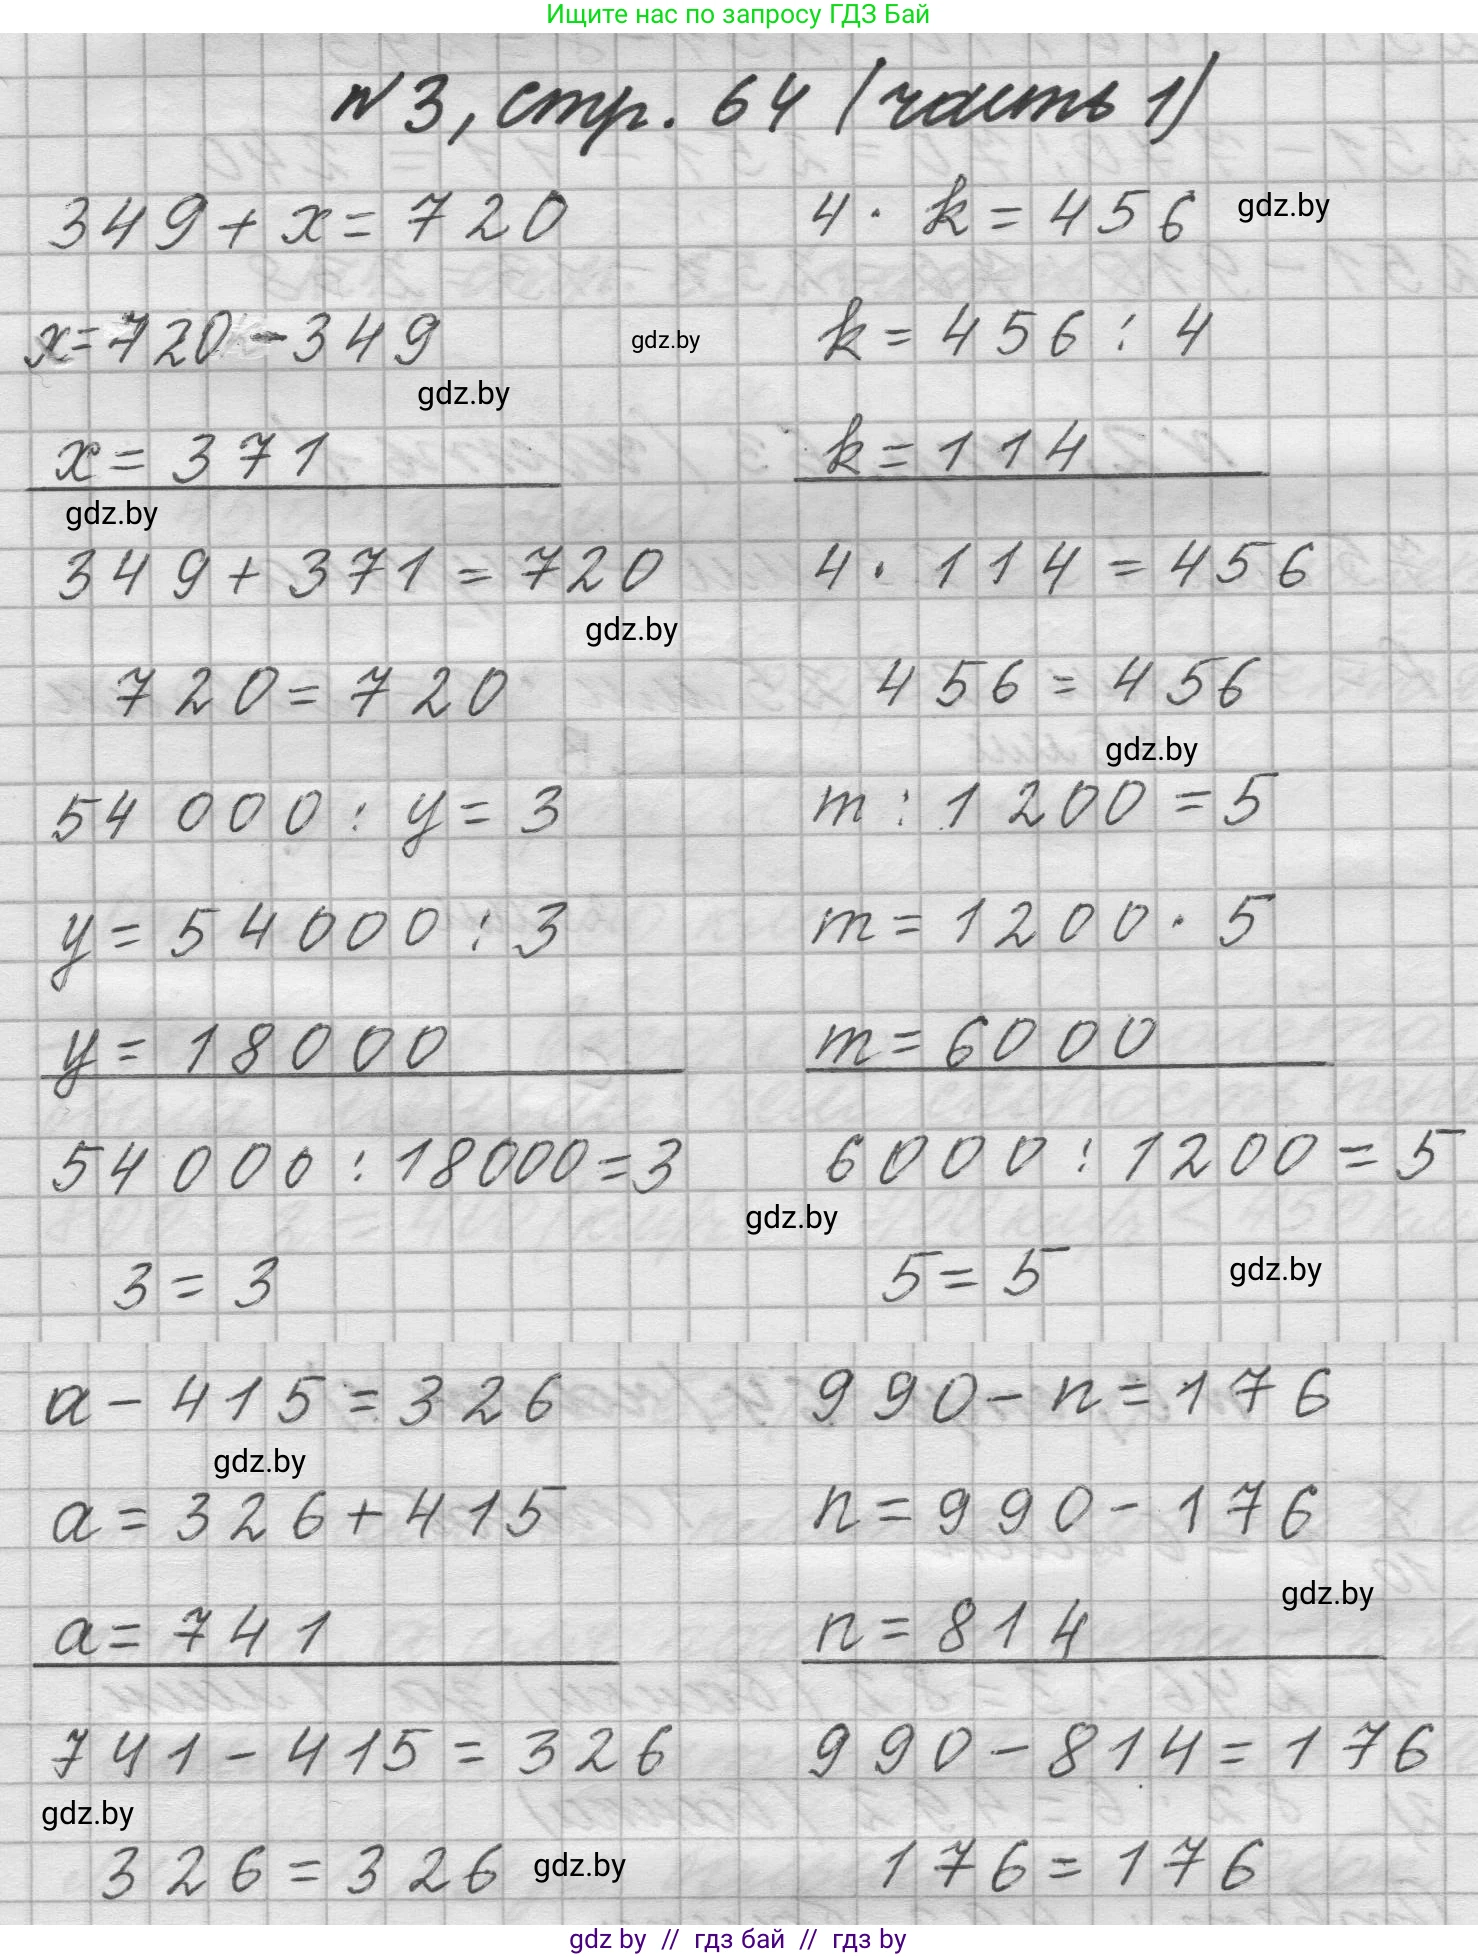 Ищите нас по запросу ГДЗ Бай
№3, стр. 64 (часть 1)
349 + x = 720
x = 720 - 349
x = 371
349 + 371 = 720
720 = 720
4 · k = 456
k = 456 : 4
k = 114
4 · 114 = 456
456 = 456
gdz.by
gdz.by
gdz.by
gdz.by
gdz.by
gdz.by
54 000 : y = 3
y = 54000 : 3
y = 18000
54 000 : 18000 = 3
3 = 3
m : 1200 = 5
m = 1200 · 5
m = 6000
6000 : 1200 = 5
5 = 5
gdz.by
gdz.by
a - 415 = 326
a = 326 + 415
a = 741
741 - 415 = 326
326 = 326
990 - n = 176
n = 990 - 176
n = 814
990 - 814 = 176
176 = 176
gdz.by
gdz.by
gdz.by
gdz.by
gdz by // гдз бай // гдз by